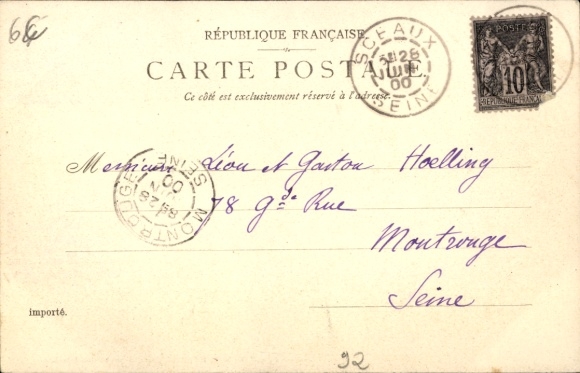 6€
RÉPUBLIQUE FRANÇAISE
CARTE POSTALE
Ce côté est exclusivement réservé à l'adresse.
SCEAUX
28
JUIN
00
SEINE
POSTES
10
RÉPUBLIQUE FRANÇAISE
MONTROUGE
28
00
SEINE
Messieurs Léon et Gaston Hoelling
78 Gde Rue
Montrouge
Seine
importé.
92